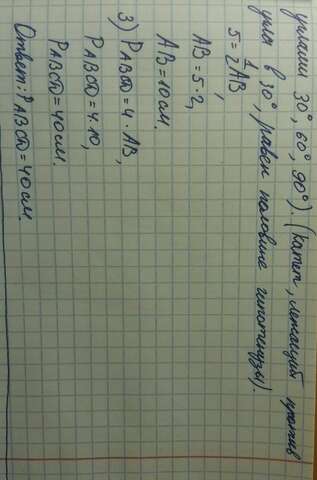 углами 30°, 60°, 90°). (Катет, лежащий против
угла в 30°, равен половине гипотенузы).
5 = 1/2 AB,
AB = 5 · 2,
AB = 10 см.
3) P ABCD = 4 · AB,
P ABCD = 4 · 10,
P ABCD = 40 см.
Ответ: P ABCD = 40 см.